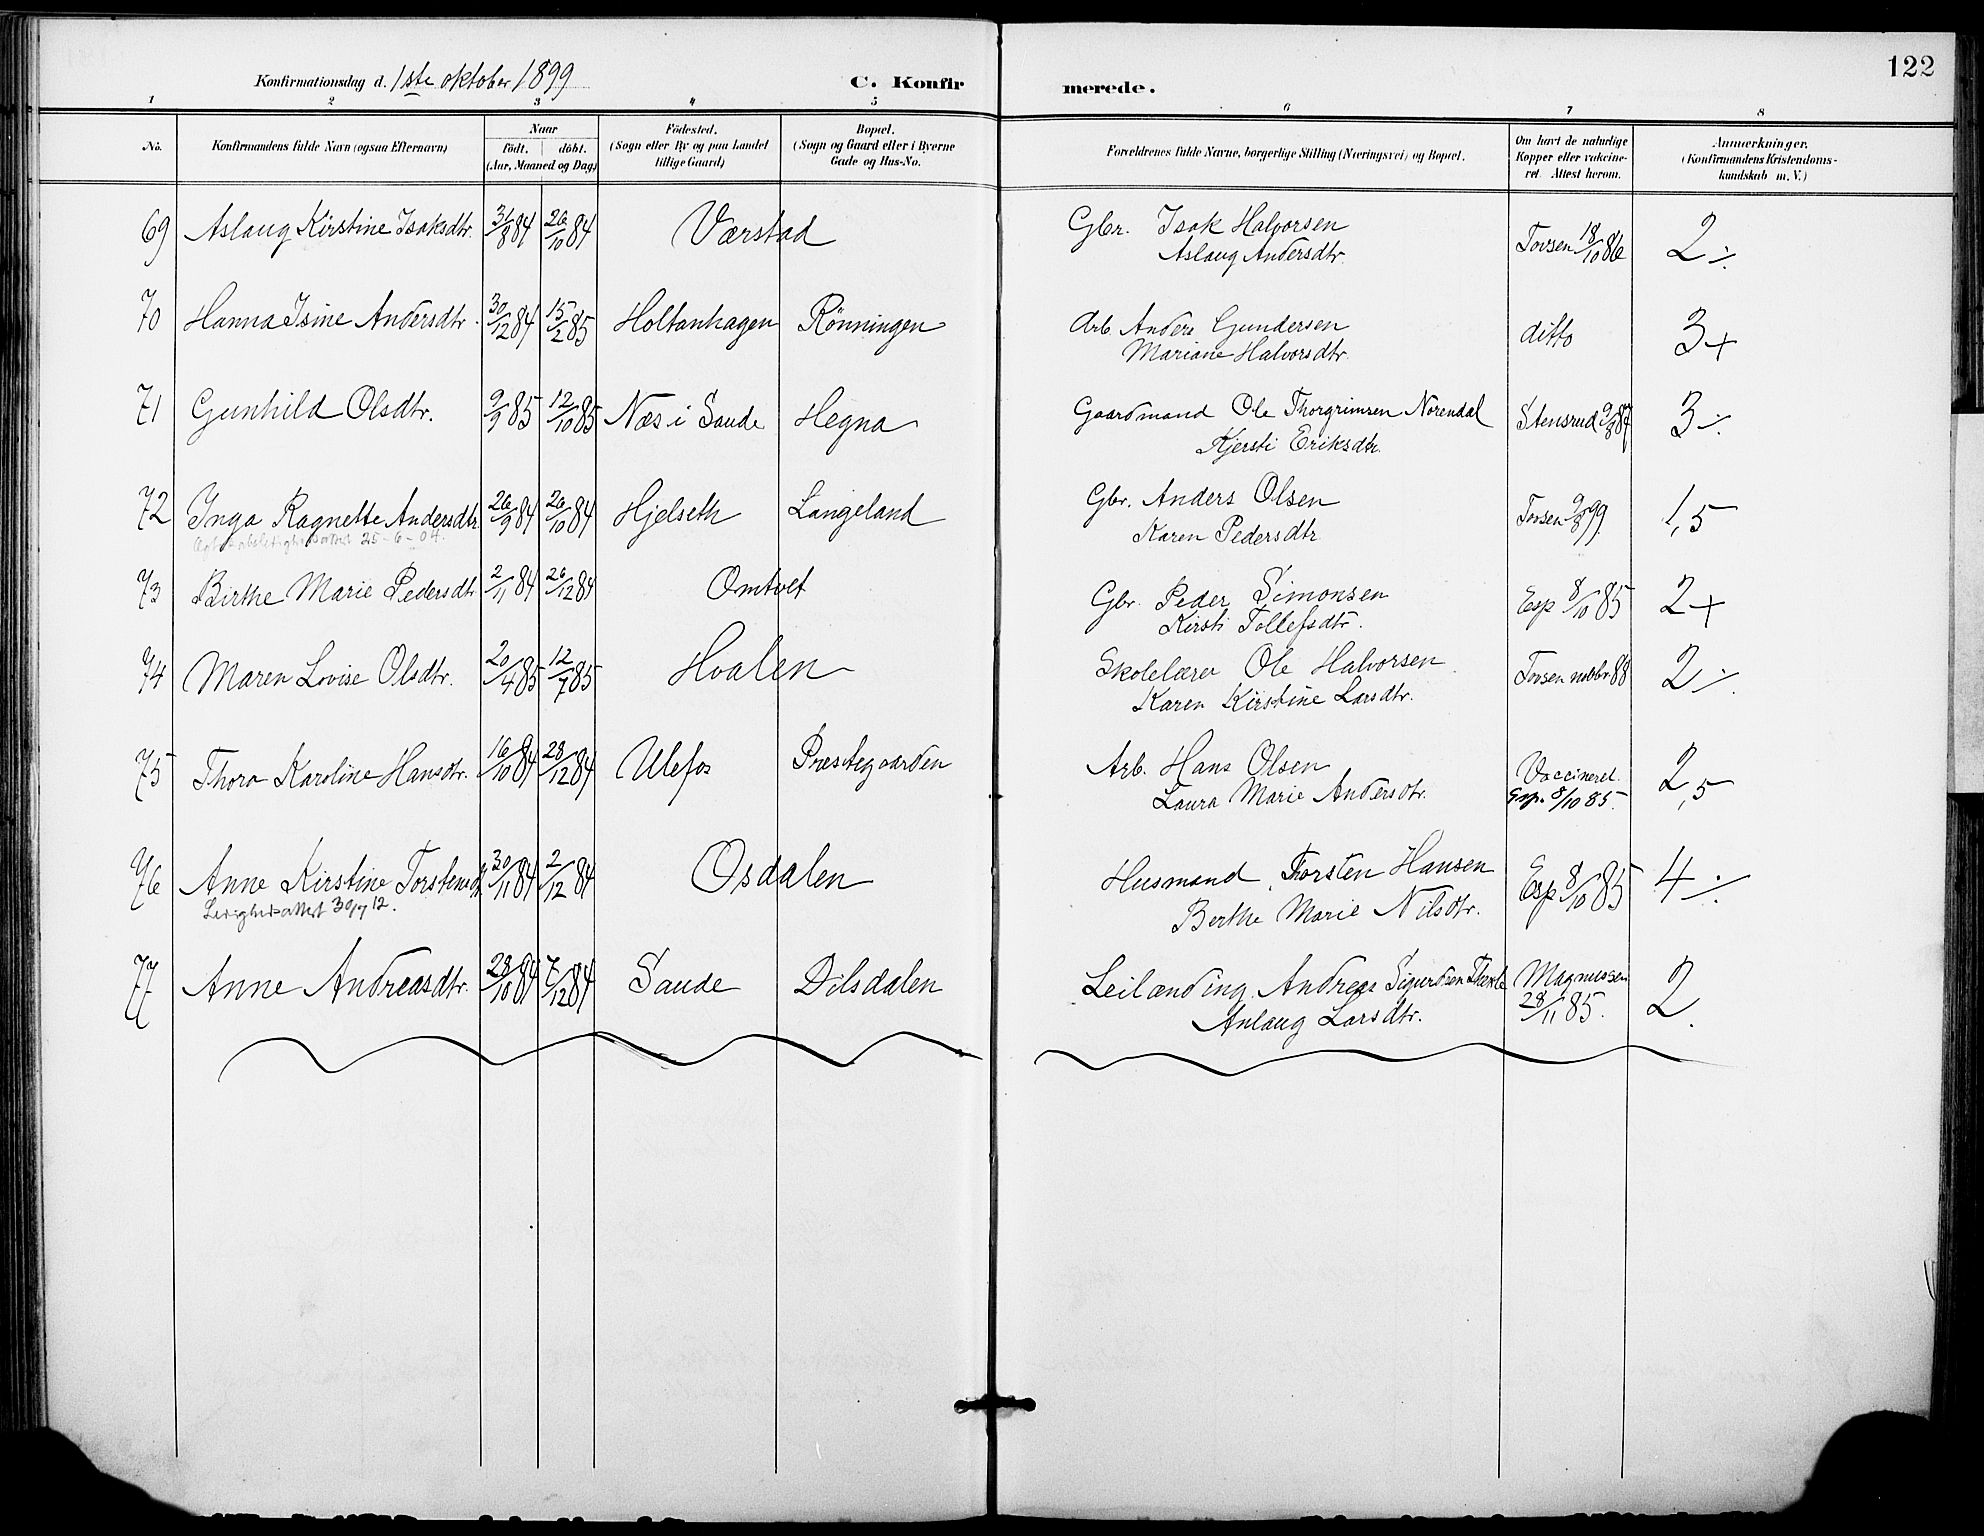 122
Konfirmationsdag d. 1ste oktober 1899 C. Konfirmerede.
1 2 3 4 5 6 7 8
No.
Konfirmandens fulde Navn (ogsaa Efternavn)
Naar
født. døbt.
(Aar, Maaned og Dag)
Fødested.
(Sogn eller By og paa Landet
tillige Gaard)
Bopæl.
(Sogn og Gaard eller i Byerne
Gade og Hus-No.
Forældrenes fulde Navne, borgerlige Stilling (Næringsvei) og Bopæl.
Om havt de naturlige
Kopper eller vakcine-
ret. Attest herom.
Anmærkninger.
(Konfirmandens Kristendoms-
kundskab m. V.)
69 Aslaug Kirstine Isaksdtr. 31/8 84 26/10 84 Værstad Gbr. Isak Halvorsen Tovsen 18/10 86 2 ÷
Aslaug Andersdtr.
70 Hanna Isine Andersdtr. 30/12 84 15/2 85 Holtanhagen Rönningen Arb. Anders Gundersen ditto 3 +
Mariane Halvorsdtr.
71 Gunhild Olsdtr. 9/9 85 12/10 85 Næs i Saude Hegna Gaardmand Ole Thorgrimsen Norendal Stensrud 9/8 87 3 ÷
Kjersti Eriksdtr.
72 Inga Ragnette Andersdtr. 26/9 84 26/10 84 Hjelseth Langeland Gbr. Anders Olsen Tovsen 9/8 99 1,5
25-6-04. Karen Pedersdtr.
73 Birthe Marie Pedersdtr 2/11 84 26/12 84 Omtvet Gbr. Peder Simonsen Esp 8/10 85 2 +
Kirsti Tollefsdtr.
74 Maren Lovise Olsdtr. 20/4 85 12/7 85 Hvalen Skolelærer Ole Halvorsen Tovsen novbr 88 2 ÷
Karen Kirstine Larsdtr.
75 Thora Karoline Hansdtr. 16/10 84 28/12 84 Ulefos Præstegaarden Arb. Hans Olsen Vaccineret. 2,5
Laura Marie Andersdtr. Esp. 8/10 85.
76 Anne Kirstine Torstensdtr 30/11 84 2/12 84 Osdalen Husmand Thorsten Hansen Esp 8/10 85 4 ÷
Ledighedsattest 30/7 12. Berthe Marie Nilsdtr.
77 Anne Andreasdtr. 28/10 84 7/12 84 Saude Dilsdalen Leilænding Andreas Sigurdsen Magnussen 2.
Anlaug Larsdtr. 28/11 85.